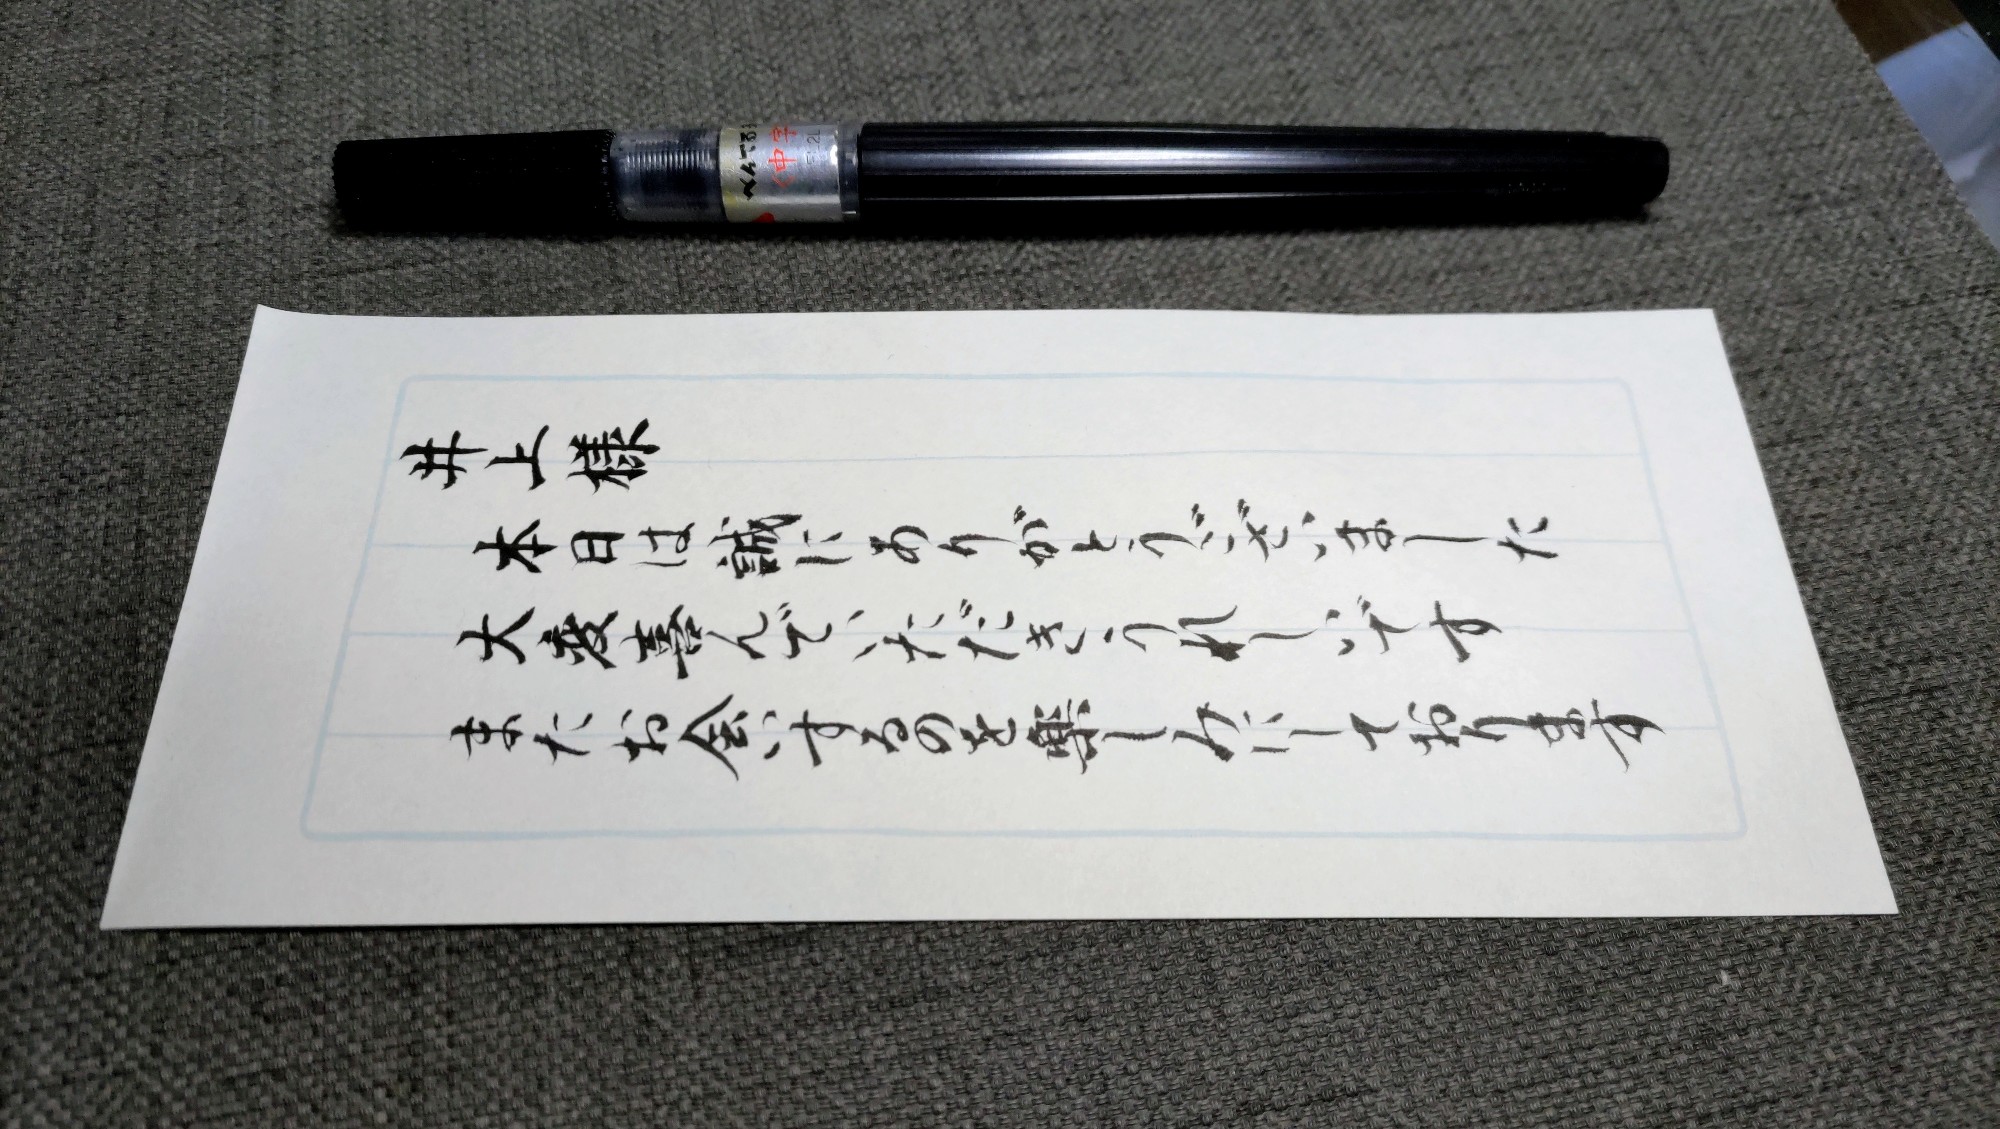 井上様
本日は誠にありがとうございました
大変喜んでいただきうれしいです
またお会いするのを楽しみにしております
ぺんてる
中字